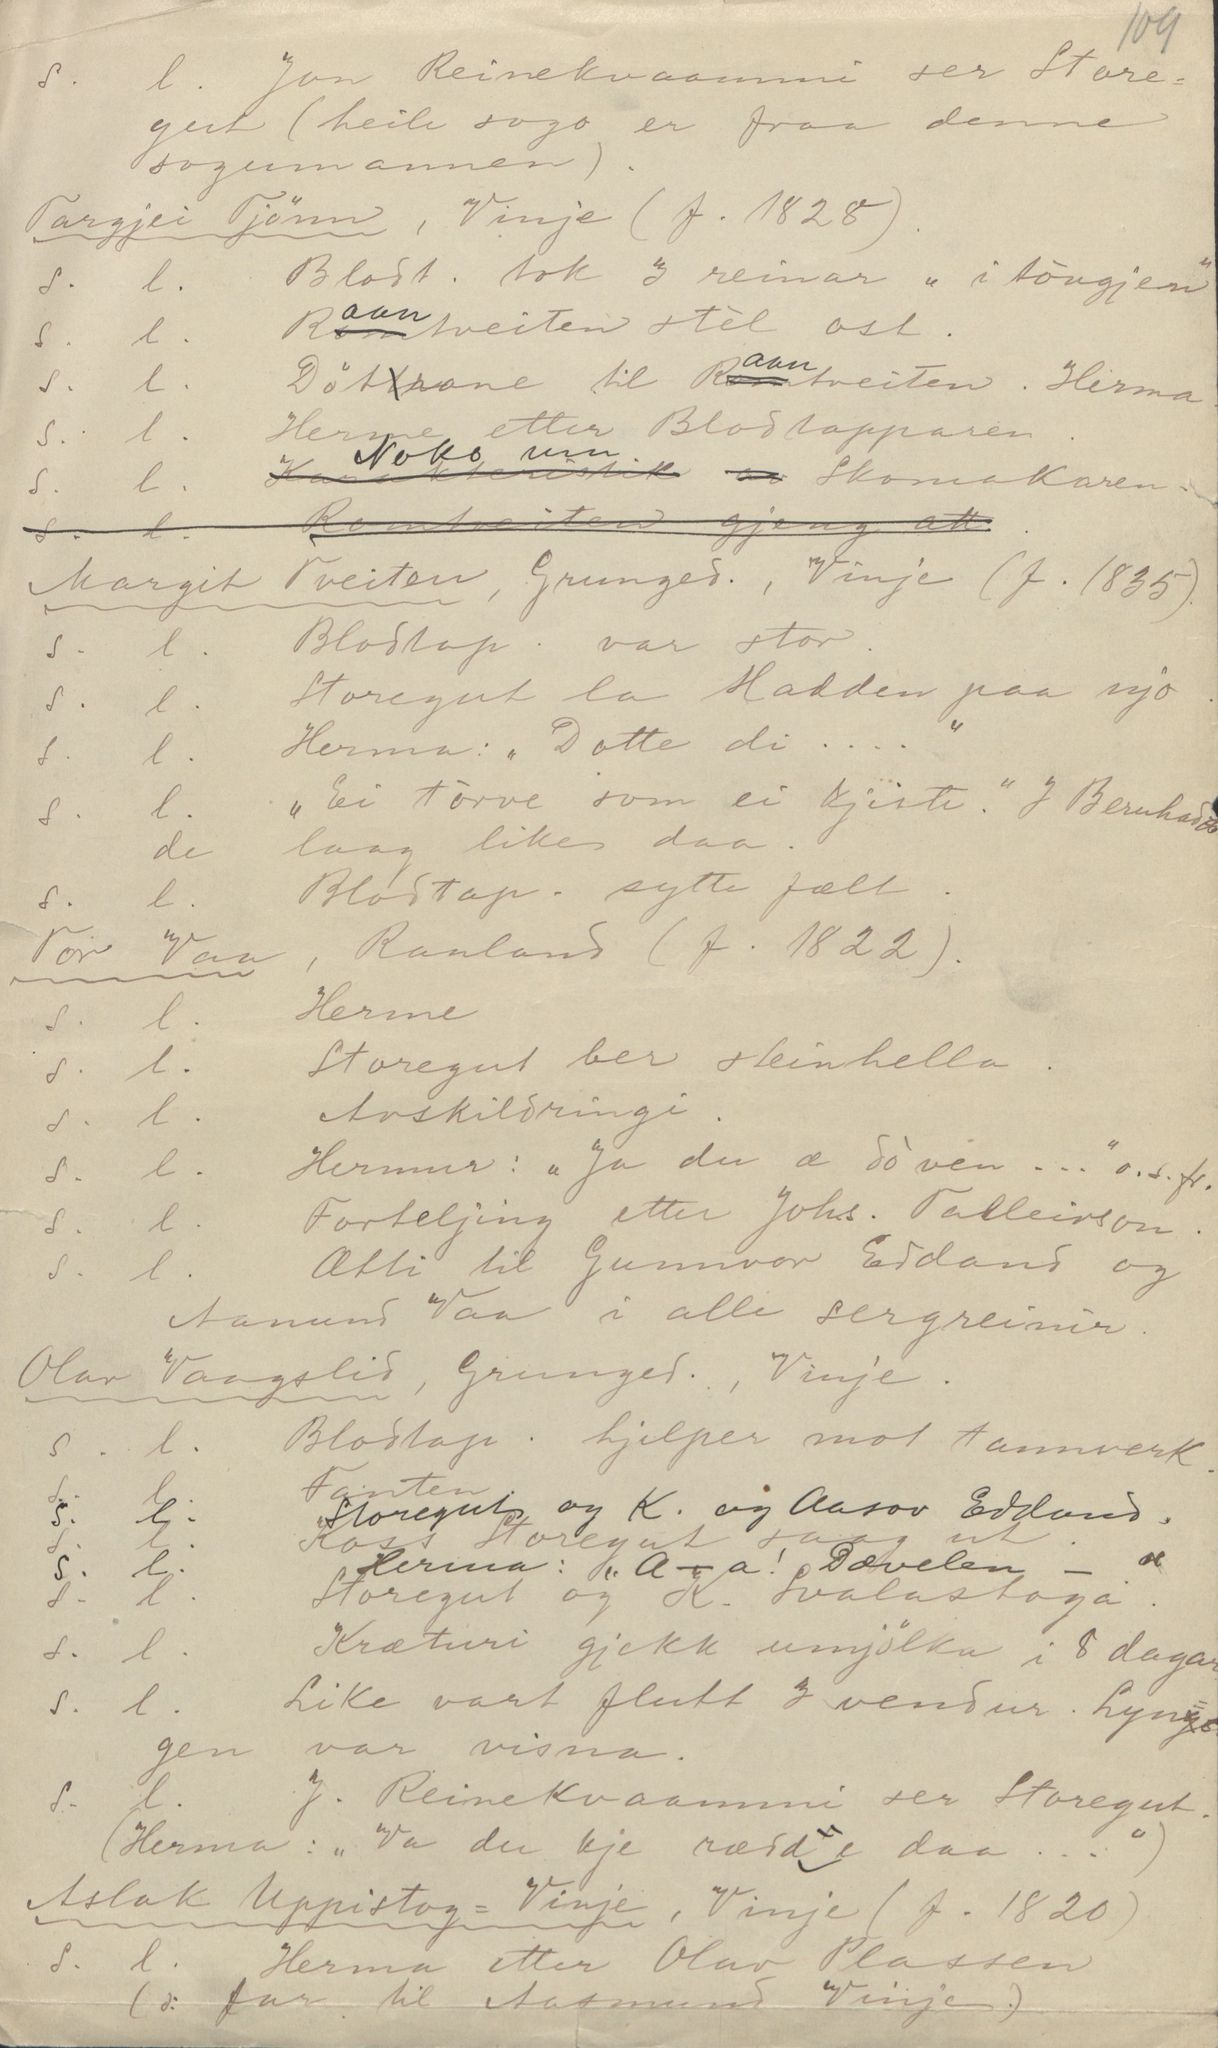 109
s. l. Jon Reinekvaammi ser Store=
gut (heile sogo er fraa denne
sogumannen).
Targjei Tjönn, Vinje (f. 1828).
s. l. Blodt. tok 3 reinar „i tövgjen"
s. l. Raantveiten stèl ost.
s. l. Dötrane til Raantveiten. Herma.
s. l. Herme etter Blodtapparen.
s. l. Noko um Skomakaren.
s. l. Romtveiten gjeng att.
Margit Tveiten, Grunged., Vinje (f. 1835).
s. l. Blodtap. var stor.
s. l. Storegut la Hadden paa snjo.
s. l. Herma: „Dotte di . . . . "
s. l. „Ei törve som ei kjiste." I
de laag liket daa.
s. l. Blodtap. sytte fælt.
Tor Vaa, Rauland (f. 1822).
s. l. Herme
s. l. Storegut ber steinhella.
s. l. Avskildringi.
s. l. Hermur: „Ja du æ dö ven . . ." o.s.fr.
s. l. Forteljing etter Johs. Talleivson.
s. l. Ætti til Gunnvor Eddand og
Aanund Vaa i alle sergreinir.
Olav Vaagslid, Grunged., Vinje.
s. l. Blodtap. hjelper mot tannverk.
s. l. Fanten
s. l. Storegut og K. og Aasov Eddand.
s. l. Koss Storegut saag ut.
s. l. Herma: „A-a! Dævelen — "
s. l. Storegut og K. Svalastoga.
s. l. Kræturi gjekk umjölka i 8 dagar
s. l. Like vart flutt 3 vendur. Lyng=
gen var visna.
s. l. J. Reinekvaammi ser Storegut.
(Herma: „Va du kje rædde daa . . . ")
Aslak Uppistog=Vinje, Vinje (f. 1820)
s. l. Herma etter Olav Plassen
(ɔ: far til Aasmund Vinje.)